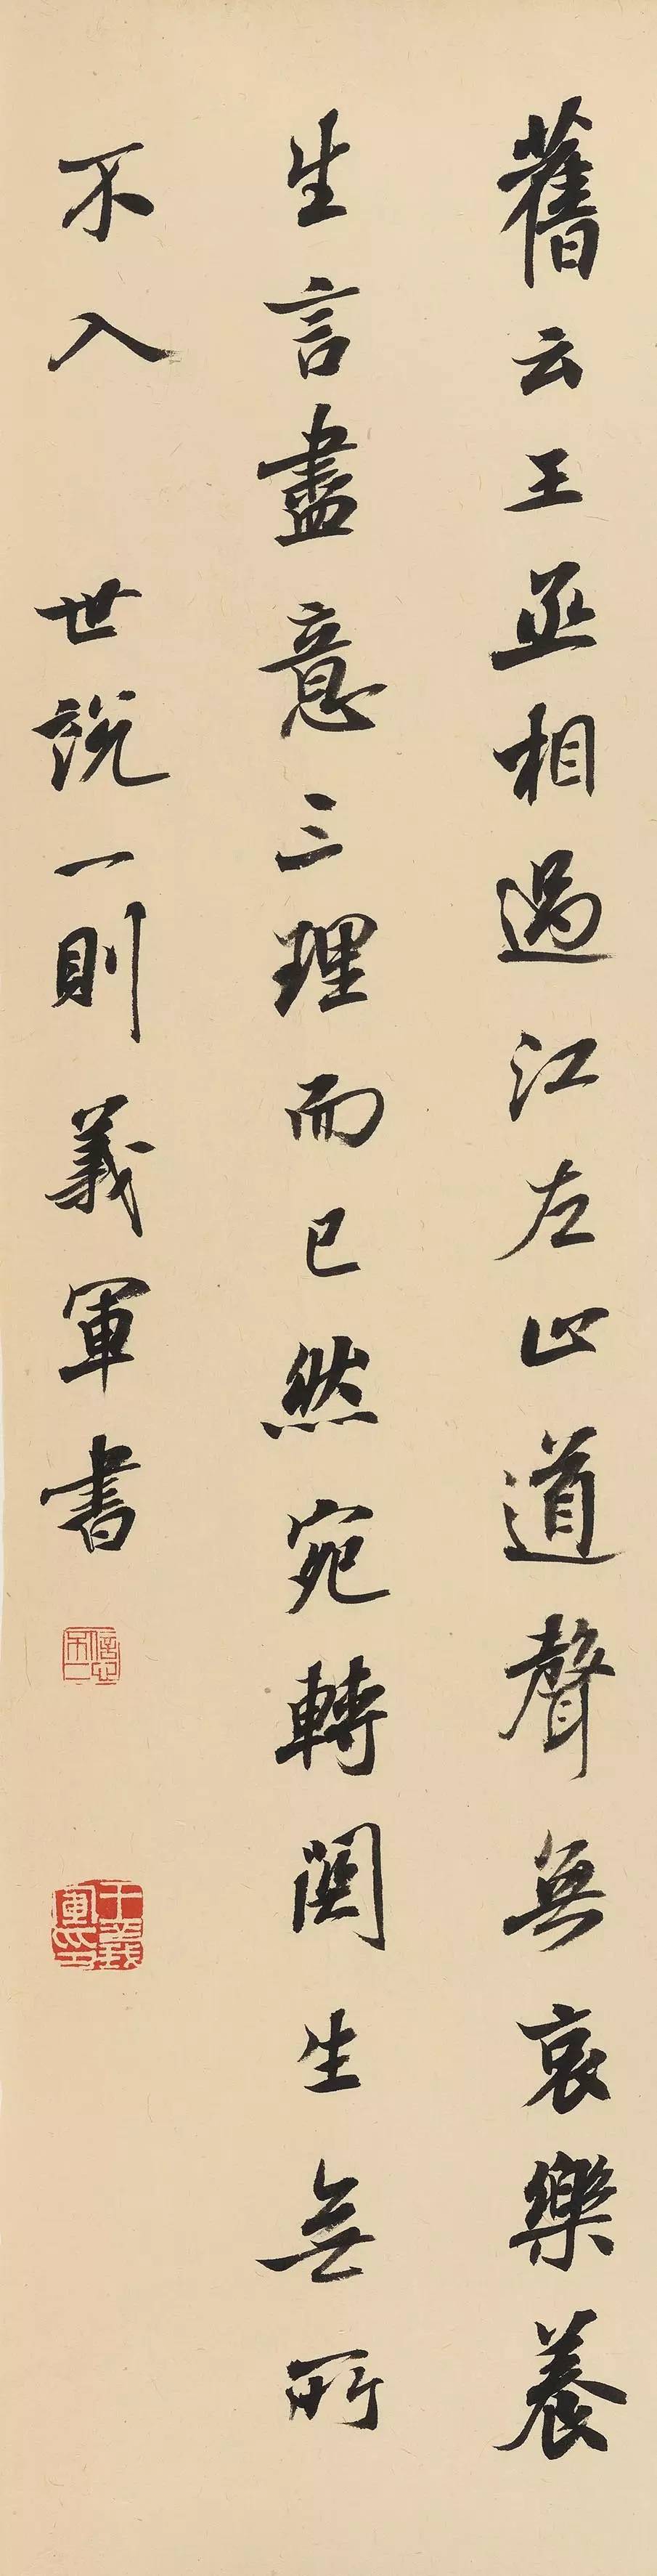 舊云王丞相過江左止道聲無哀樂養
生言盡意三理而已然宛轉關生無所
不入 世說一則義軍書
王義軍印